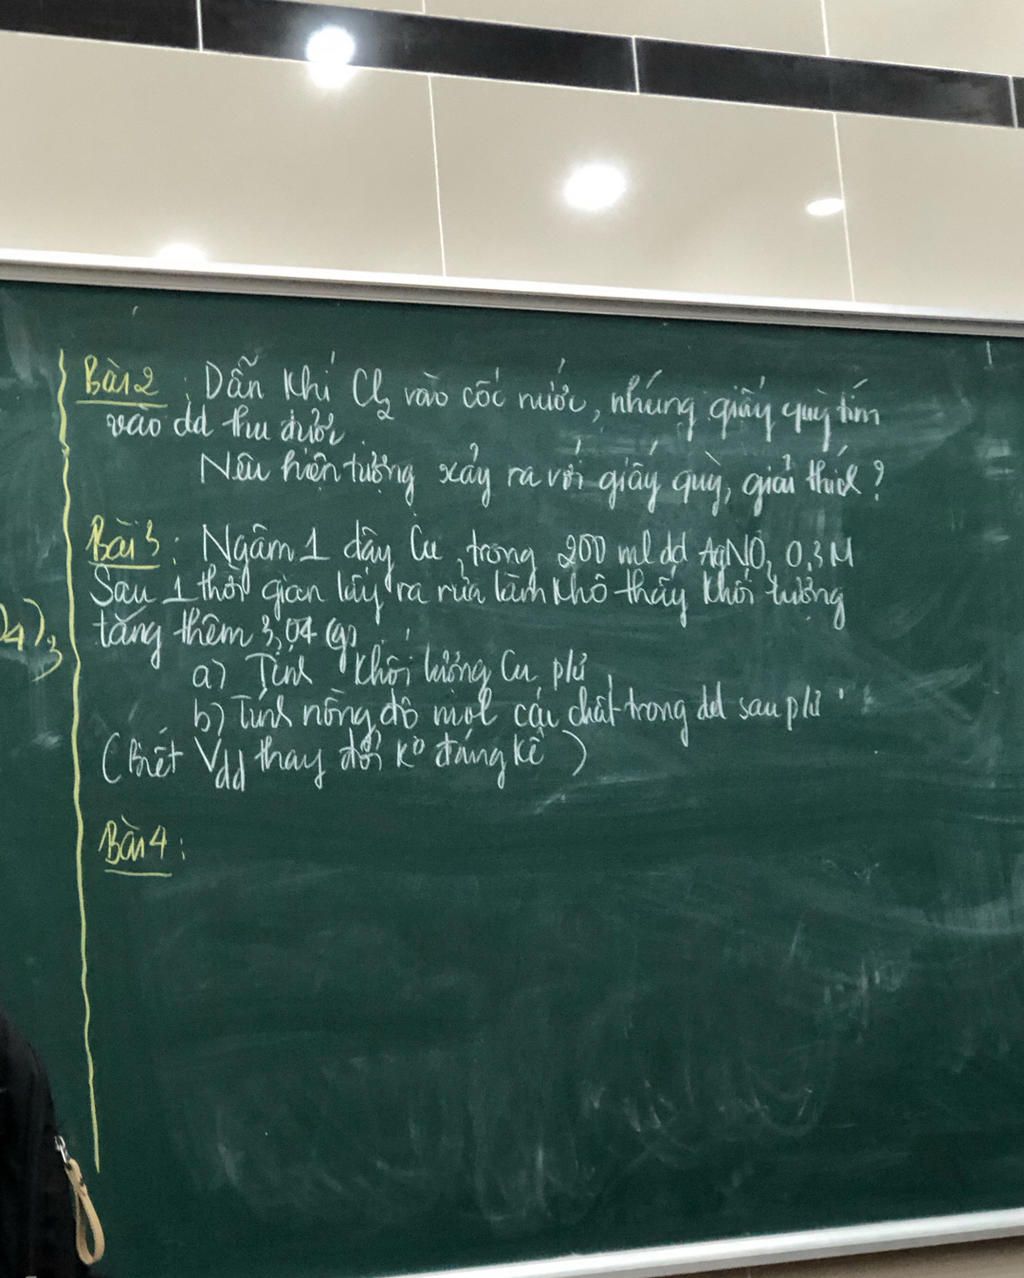 Bài 2 : Dẫn khí Cl2 vào cốc nước, nhúng giấy quỳ tím
vào dd thu được.
Nêu hiện tượng xảy ra với giấy quỳ, giải thích ?
Bài 3 : Ngâm 1 dây Cu trong 200 ml dd AgNO3 0,3M
Sau 1 thời gian lấy ra rửa làm khô thấy khối lượng
tăng thêm 3,04 (g).
O4)3
a) Tính khối lượng Cu pứ
b) Tính nồng độ mol các chất trong dd sau pứ
(Biết Vdd thay đổi ko đáng kể)
Bài 4 :